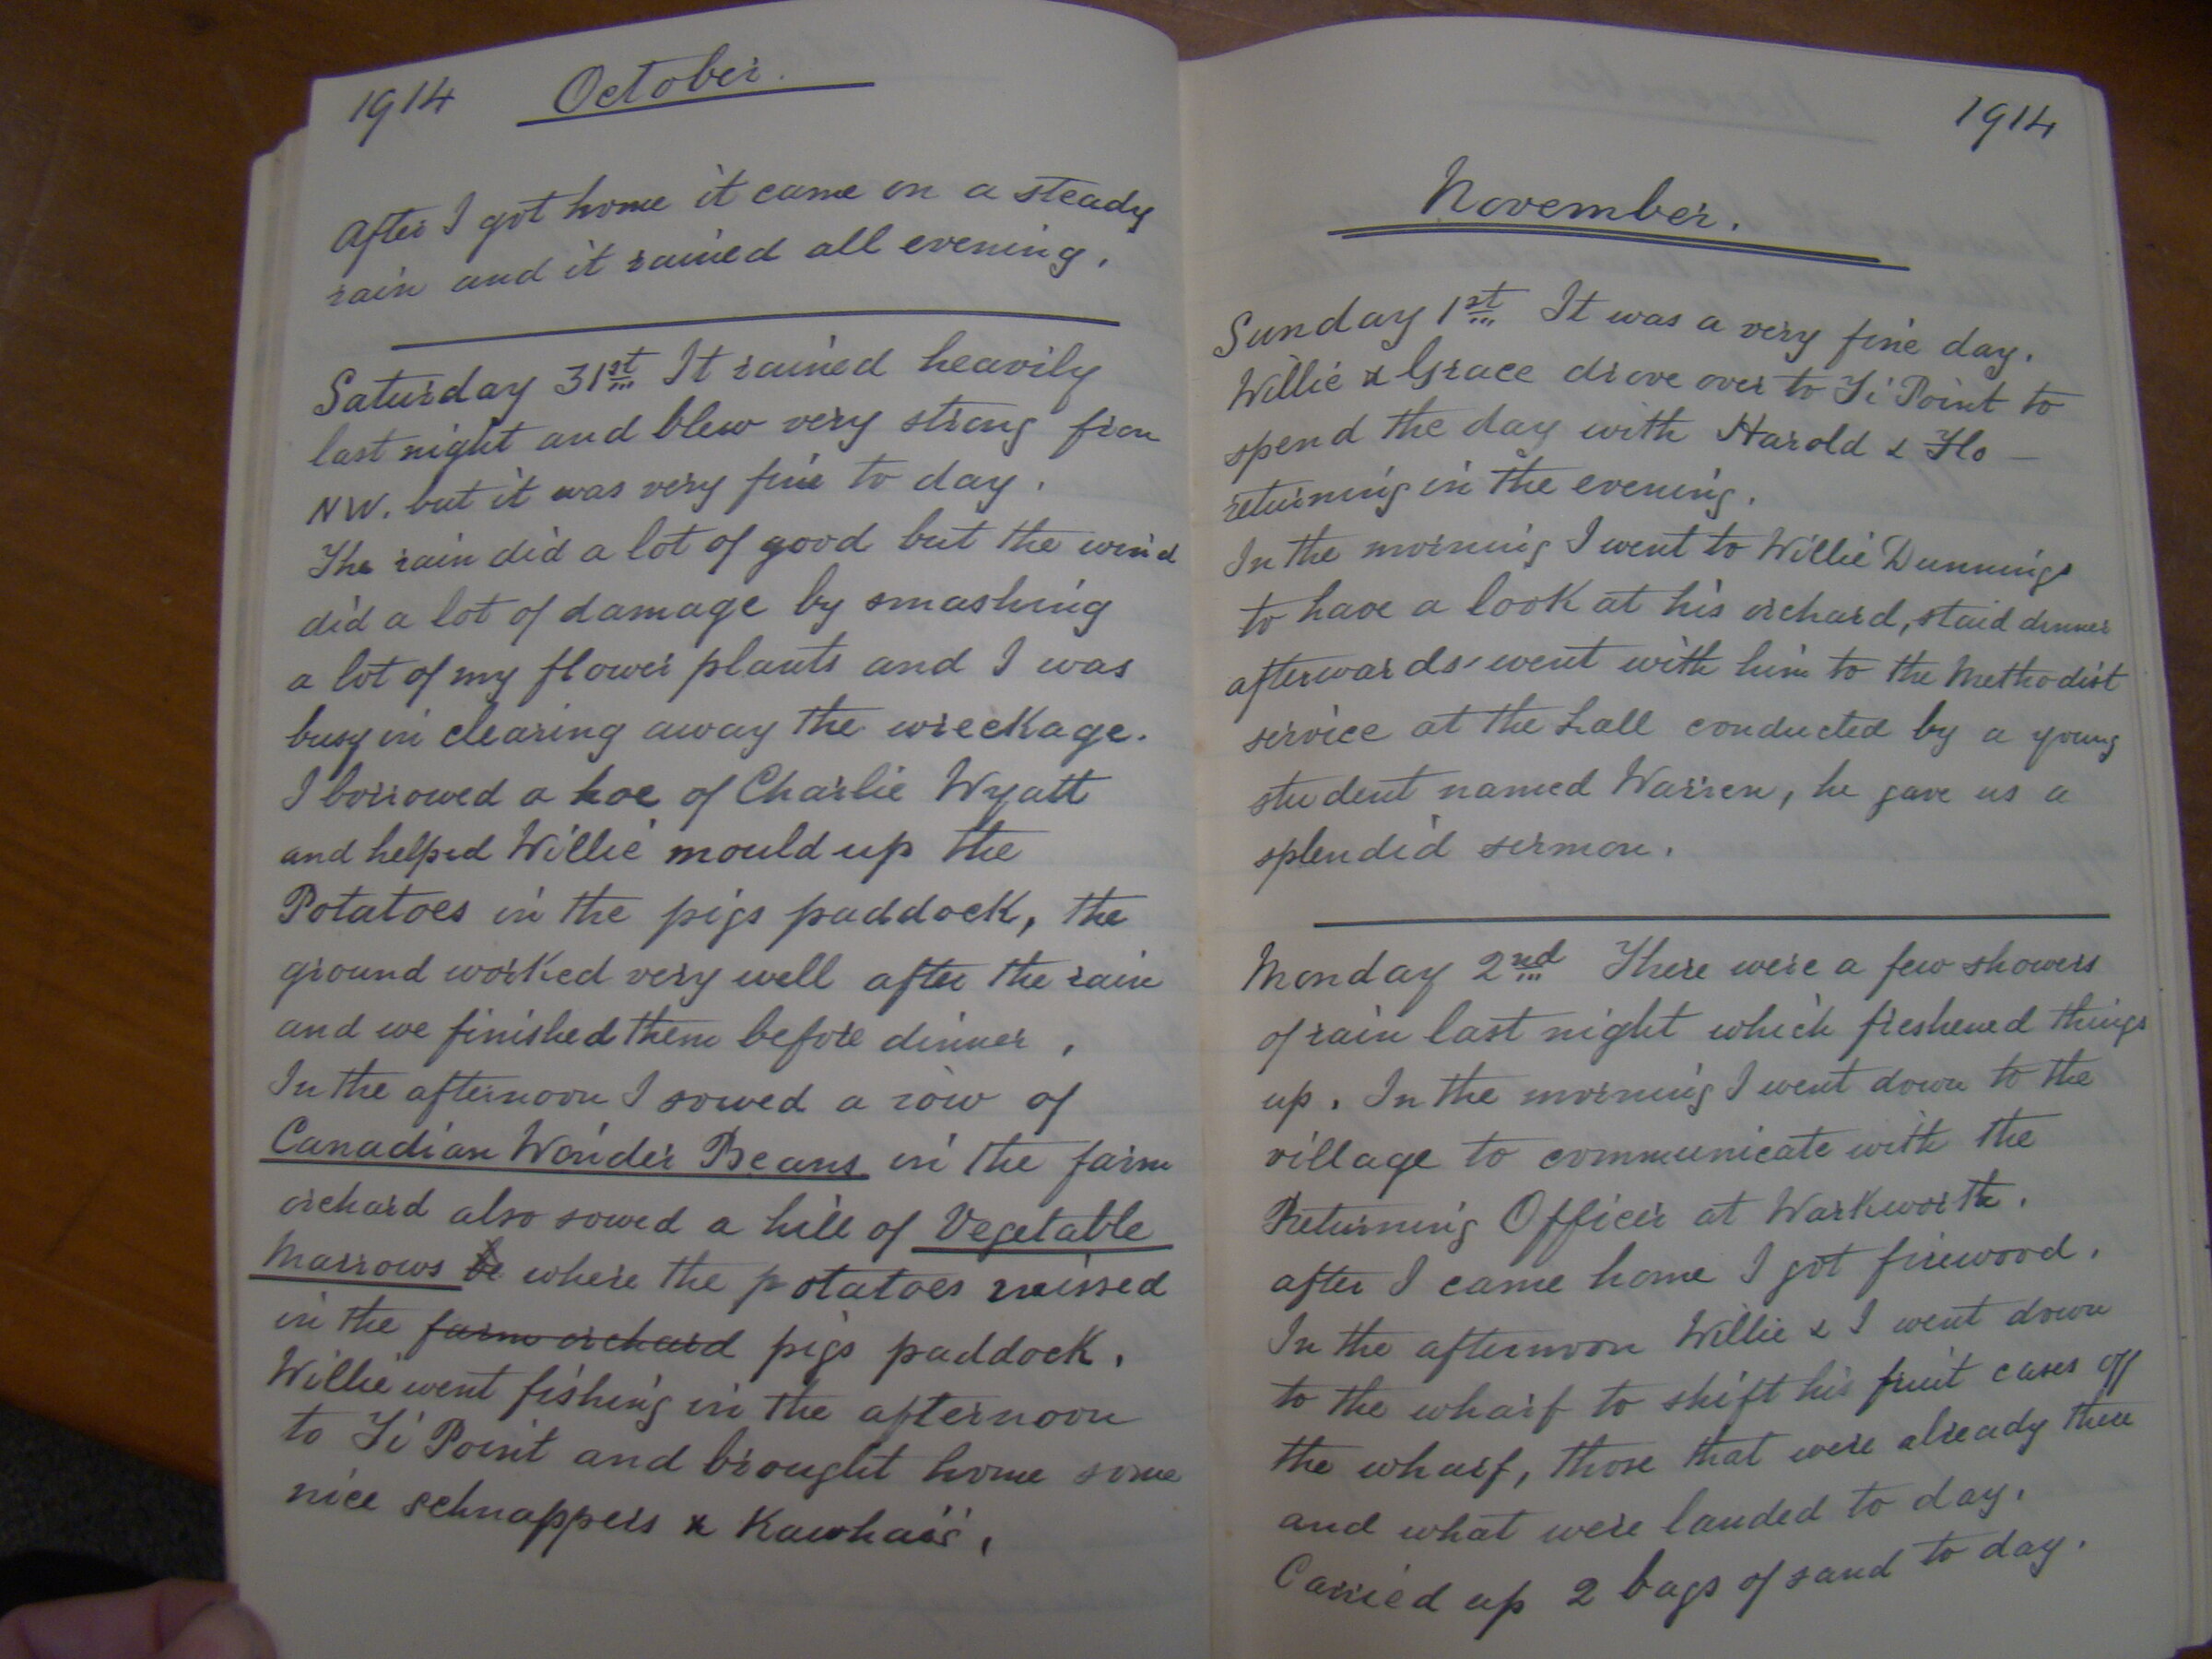 1914 October.
After I got home it came on a steady
rain and it rained all evening.
Saturday 31st It rained heavily
last night and blew very strong from
NW. but it was very fine to day.
The rain did a lot of good but the wind
did a lot of damage by smashing
a lot of my flower plants and I was
busy in clearing away the wreckage.
I borrowed a hoe of Charlie Wyatt
and helped Willie mould up the
Potatoes in the pigs paddock, the
ground worked very well after the rain
and we finished them before dinner,
In the afternoon I sowed a row of
Canadian Wonder Beans in the farm
orchard also sowed a hill of Vegetable
Marrows where the potatoes missed
in the farm orchard pigs paddock.
Willie went fishing in the afternoon
to Ti Point and brought home some
nice schnappers & Kawhais.
1914
November.
Sunday 1st It was a very fine day.
Willie & Grace drove over to Ti Point to
spend the day with Harold & Flo –
returning in the evening.
In the morning I went to Willie Dunnings
to have a look at his orchard, staid dinner
afterwards went with him to the Methodist
service at the Hall conducted by a young
student named Warren, he gave us a
splendid sermon.
Monday 2nd There were a few showers
of rain last night which freshened things
up. In the morning I went down to the
village to communicate with the
Returning Officer at Warkworth.
after I came home I got firewood.
In the afternoon Willie & I went down
to the wharf to shift his fruit cases off
the wharf, those that were already there
and what were landed to day.
Carried up 2 bags of sand to day.